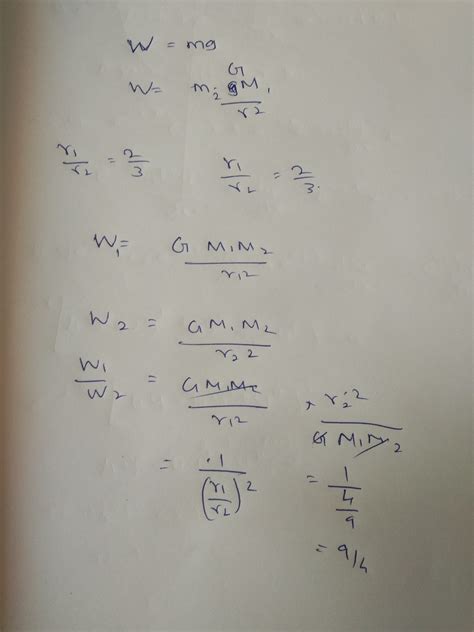 W = mg
W = m₂ G M₁ / r²
r₁/r₂ = 2/3   r₁/r₂ = 2/3.
W₁ = G M₁M₂ / r₁²
W₂ = G M₁ M₂ / r₂²
W₁/W₂ = G M₁M₂ / r₁² × r₂² / G M₁M₂
= 1 / (r₁/r₂)² = 1 / 4/9
= 9/4